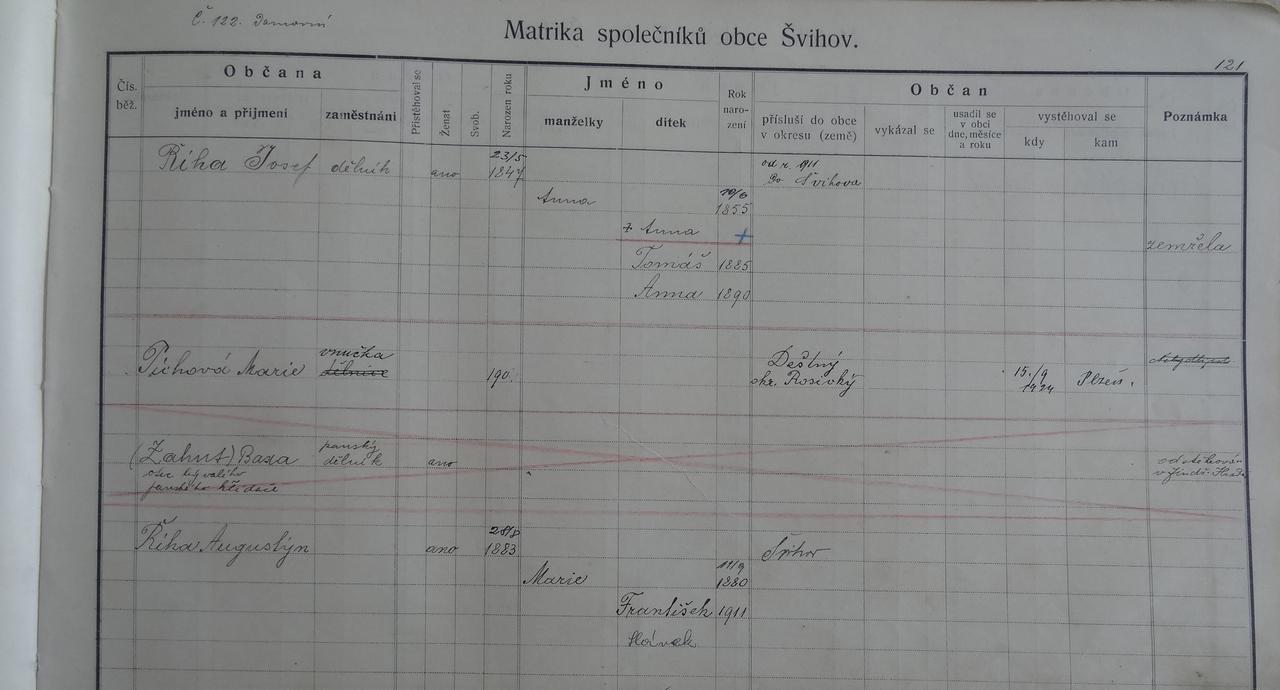 Č. 122. Domovní
Matrika společníků obce Švihov.
121
Čís. běž.
Občana
jméno a přijmení
zaměstnání
Přistěhoval se
Ženat
Svob.
Narozen roku
Jméno
manželky
dítek
Rok naro- zení
Občan
přísluší do obce v okresu (země)
vykázal se
usadil se v obci dne, měsíce a roku
vystěhoval se
kdy
kam
Poznámka
Říha Josef dělník ano 23/5 1847 od r. 911 Do Švihova
Anna 1855
Anna + zemřela
Tomáš 1885
Anna 1890
Pichová Marie vnučka dělnice 190 Deštný okr. 15./9 Plzeň.
(Zahut) Baxa panský dělník ano
otec bývalého
panského hlídače
Říha Augustýn ano 28/8 1883 Švihov
Marie 11/9 1880
František 1911
Slávek